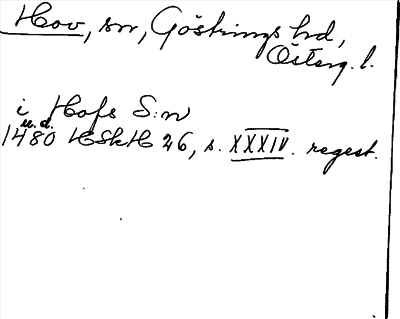 Hov, sn, Göstrings hd,
Österg. l.
i Hofs S:n
u.d.
1480 HSkH 26, s. XXXIV. regest.